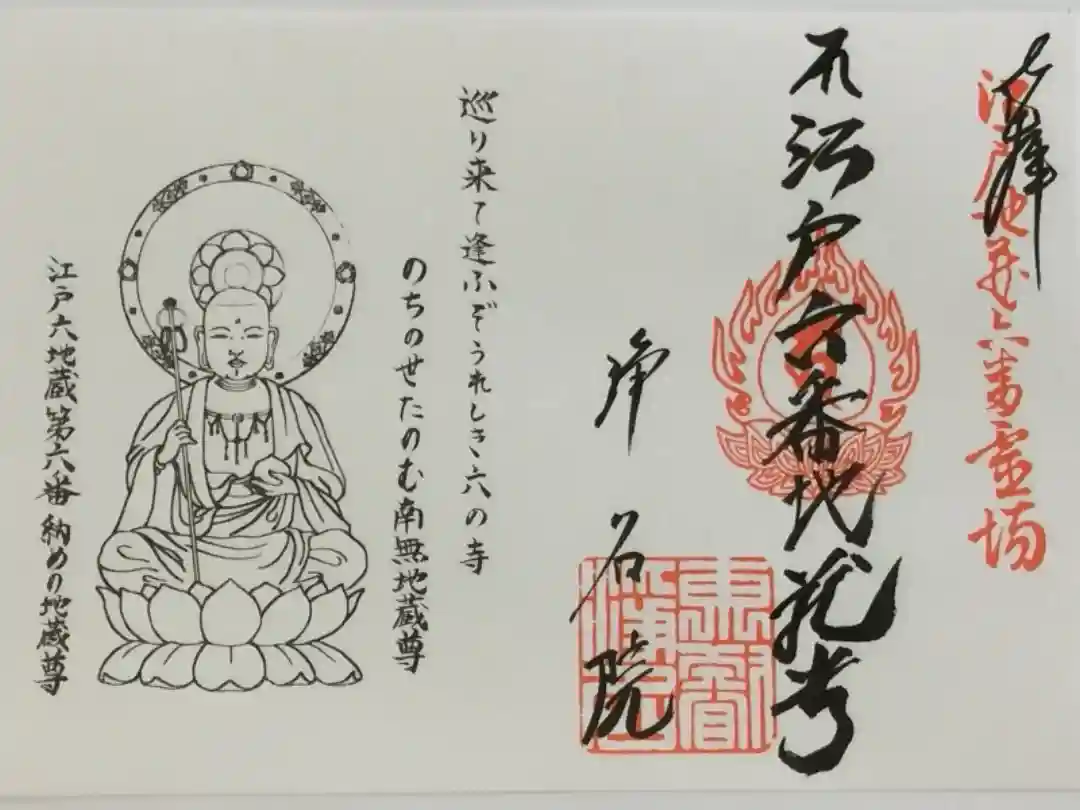 江戸地蔵六番霊場
江戸六番地蔵尊
浄名院
巡り来て逢ふぞうれしき六の寺
のちのせたのむ南無地蔵尊
江戸六地蔵第六番納めの地蔵尊